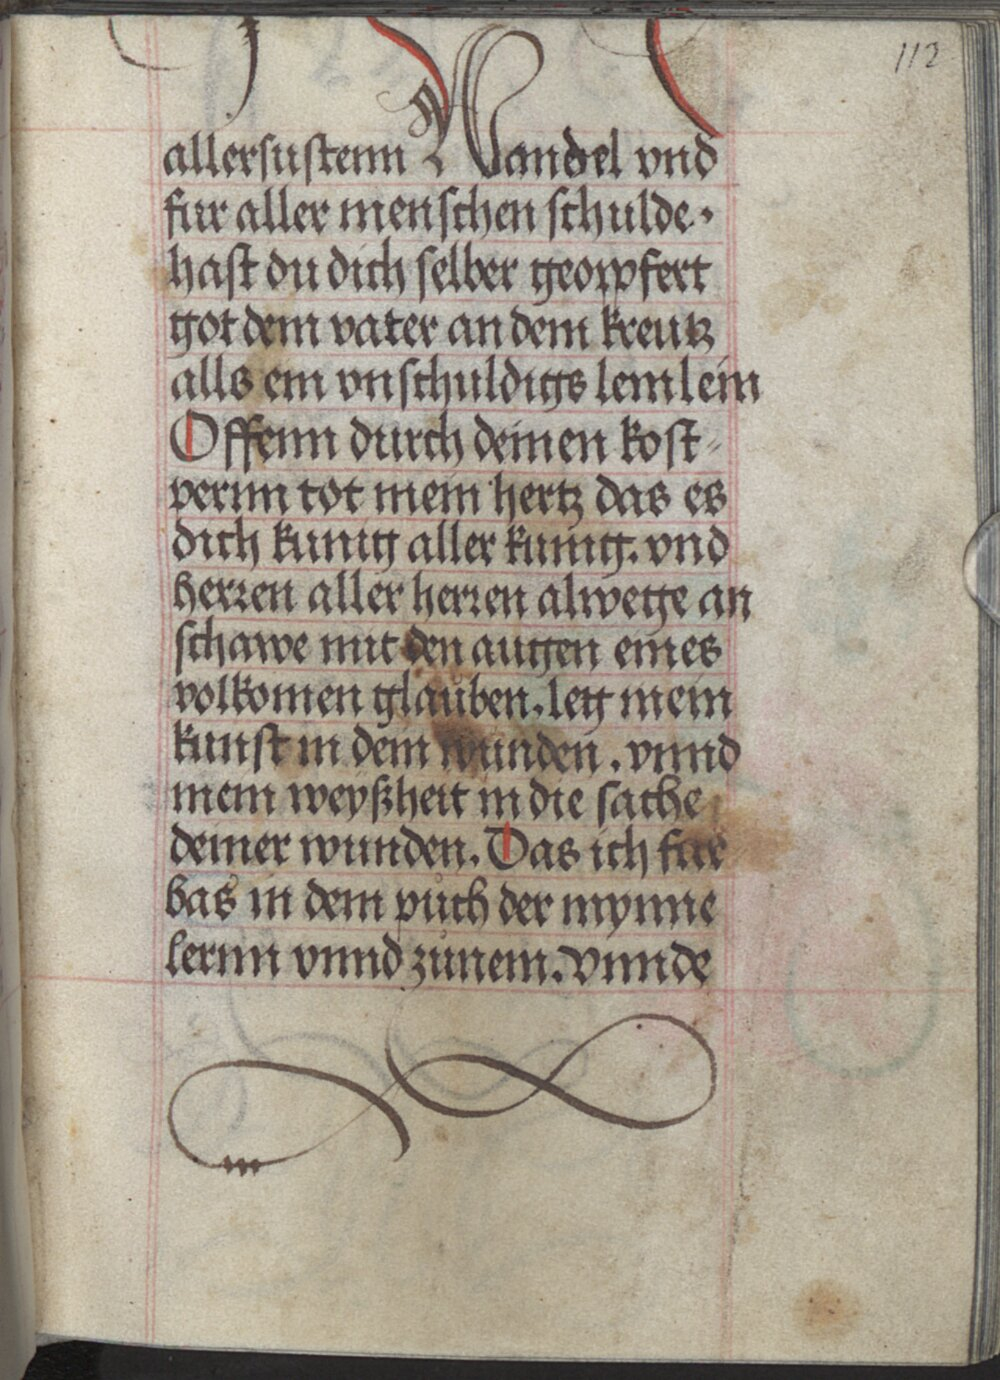 112
allersustenn Wandel vnd
fur aller menschen schulde.
hast du dich selber geopfert
got dem vater an dem kreutz
alls ein vnschuldigs lemlein
Offenn durch deinen kost-
perinn tot mein hertz das es
dich kunig aller kunig. vnd
herren aller herren alwege an
schawe mit den augen eines
volkomen glauben. leg mein
kunst in dein wunden. vnnd
mein weyßheit in die sache
deiner wunden. Das ich fur
bas in dem puch der mynne
lernn vnnd zunem. vnnde